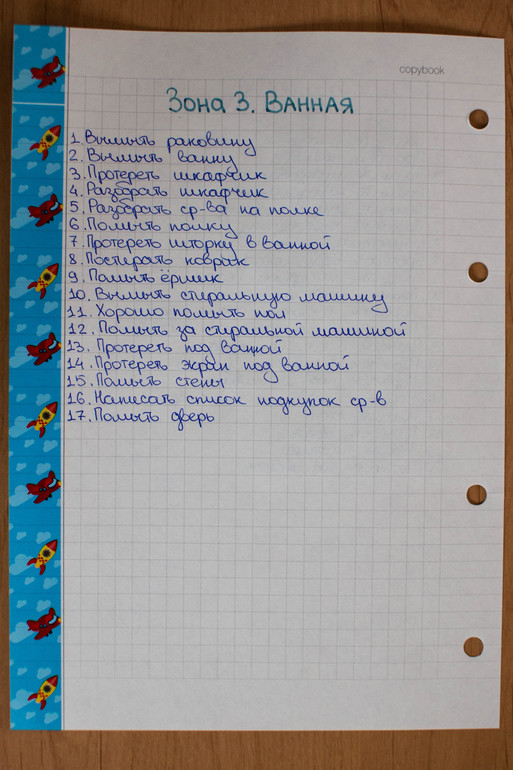 copybook
Зона 3. Ванная
1. Вымыть раковину
2. Вымыть ванну
3. Протереть шкафчик
4. Разобрать шкафчик
5. Разобрать ср-ва на полке
6. Помыть полку
7. Протереть шторку в ванной
8. Постирать коврик
9. Помыть ёршик
10. Вымыть стиральную машину
11. Хорошо помыть пол
12. Помыть за стиральной машиной
13. Протереть под ванной
14. Протереть экран под ванной
15. Помыть стены
16. Написать список подкупок ср-в
17. Помыть дверь